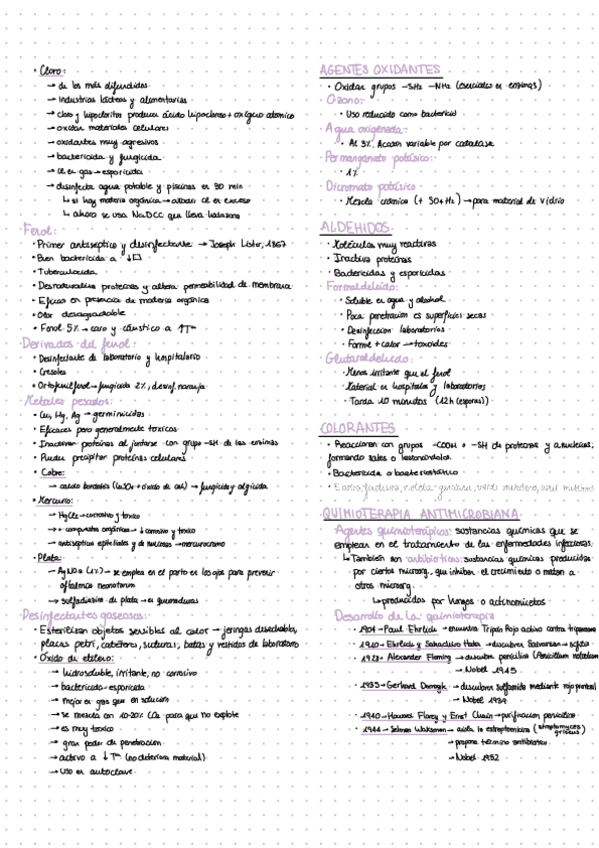 · Cloro:
→ de los más difundidos
→ Industrias lácteas y alimentarias
→ cloro y hipocloritos producen ácido hipocloroso + oxígeno atómico
→ oxidan materiales celulares
→ oxidantes muy agresivos
→ bactericida y fungicida
→ Cl en gas → esporicida
→ desinfecta agua potable y piscinas en 30 min
↳ si hay materia orgánica → añadir Cl en exceso
↳ ahora se usa NaDCC que lleva
Fenol:
· Primer antiséptico y desinfectante → Joseph Lister, 1867
· Buen bactericida a ↓[ ]
· Tuberculocida
· Desnaturaliza proteínas y altera permeabilidad de membrana
· Eficaz en presencia de materia orgánica
· Olor desagradable
· Fenol 5% → caro y cáustico a ↑Tª
Derivados del fenol:
· Desinfectante de laboratorio y hospitalario
· Cresoles
· Ortofenilfenol → fungicida 2%, desinf. naranja
Metales pesados:
· Cu, Hg, Ag → germinicidas
· Eficaces pero generalmente tóxicos
· Inactivan proteínas al juntarse con grupo -SH de las enzimas
· Pueden precipitar proteínas celulares
· Cobre:
→ caldo bordelés (CuSO4 + óxido de cal) → fungicida y algicida
· Mercurio:
→ HgCl2 → corrosivo y tóxico
→ + compuestos orgánicos → ↓ corrosivo y tóxico
→ antisépticos epiteliales y de mucosas → mercurocromo
· Plata:
→ AgNO3 (1%) → se emplea en el parto en los ojos para prevenir
oftalmia neonatorum
→ sulfadiazina de plata → en quemaduras
Desinfectantes gaseosos:
· Esterilizan objetos sensibles al calor → jeringas desechables,
placas petri, catéteres, suturas, batas y vestidos de laboratorio
· Óxido de etileno:
→ hidrosoluble, irritante, no corrosivo
→ bactericida-esporicida
→ mejor en gas que en solución
→ se mezcla con 10-20% CO2 para que no explote
→ es muy tóxico
→ gran poder de penetración
→ activo a ↓Tª (no deteriora material)
→ uso en autoclave
AGENTES OXIDANTES
· Oxidan grupos -SH2 -NH2 (esenciales en enzimas)
Ozono:
· Uso reducido como bactericid
Agua oxigenada:
· Al 3%. Acción variable por catalasa
Permanganato potásico:
· 1%
Dicromato potásico:
· Mezcla crómica (+ SO4H2) → para material de vidrio
ALDEHIDOS
· Moléculas muy reactivas
· Inactiva proteínas
· Bactericidas y esporicidas
Formaldehído:
· Soluble en agua y alcohol
· Poca penetración en superficies secas
· Desinfección laboratorios
· Formol + calor → toxoides
Glutaraldehído:
· Menos irritante que el fenol
· Material en hospitales y laboratorios
· Tarda 10 minutos (12h esporas)
COLORANTES
· Reaccionan con grupos -COOH o -SH de proteínas y a.nucleicos,
formando sales o lesionándolos
· Bactericida o bacteriostático
QUIMIOTERAPIA ANTIMICROBIANA
Agentes quimioterápicos: sustancias químicas que se
emplean en el tratamiento de las enfermedades infecciosas
↳ También son antibióticos: sustancias químicas producidas
por ciertos microorg. que inhiben el crecimiento o matan a
otros microorg.
↳ producidos por hongos o actinomicetos
Desarrollo de la quimioterapia
· 1904 - Paul Ehrlich → encuentra Tripán Rojo activo contra tripanosoma
· 1910 - Ehrlich y Sahachiro Hata → descubren Salvarsan → sífilis
· 1928 - Alexander Fleming → descubre penicilina (Penicillium notatum)
→ Nobel 1945
· 1935 - Gerhard Domagk → descubren sulfamida mediante rojo prontosil
→ Nobel 1939
· 1940 - Howard Florey y Ernst Chain → purifican penicilina
· 1944 - Selman Waksman → aísla la estreptomicina (streptomyces griseus)
→ propone término antibiótico
→ Nobel 1952